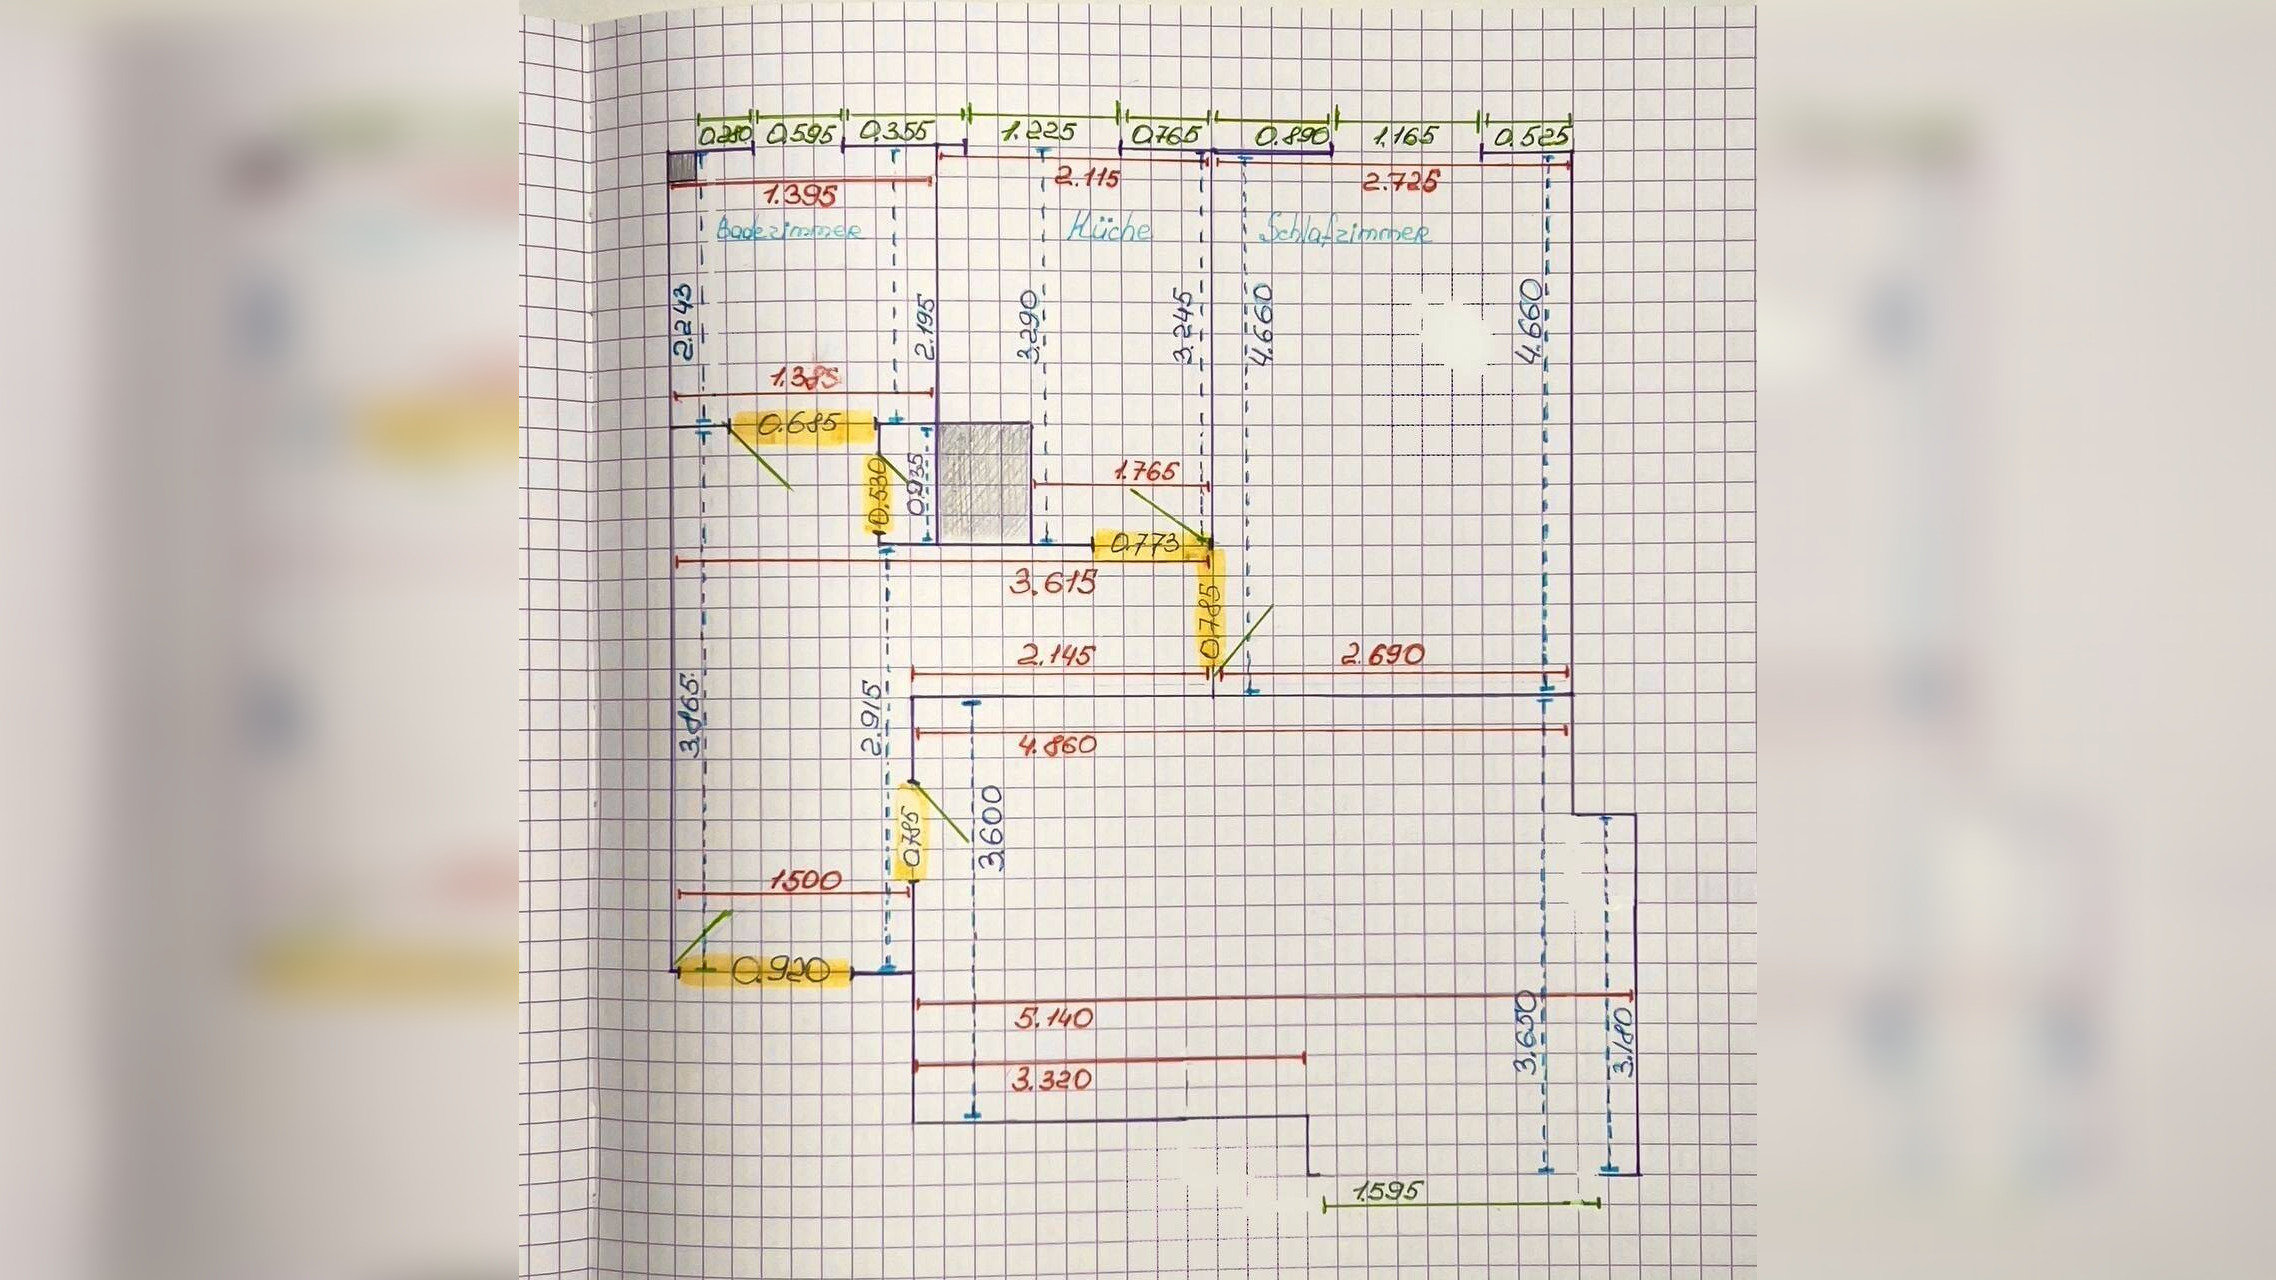 0.280 0.595 0.355 1.225 0.765 0.890 1.165 0.525
1.395 2.115 2.725
Badezimmer Küche Schlafzimmer
2.243 2.195 3.290 3.245 4.660 4.660
1.385
0.685
0.530 0.935 1.765
0.773
3.615
0.785
2.145 2.690
3.865 2.915
4.860
0.785 3.600
1.500
0.920
5.140
3.650 3.180
3.320
1.595